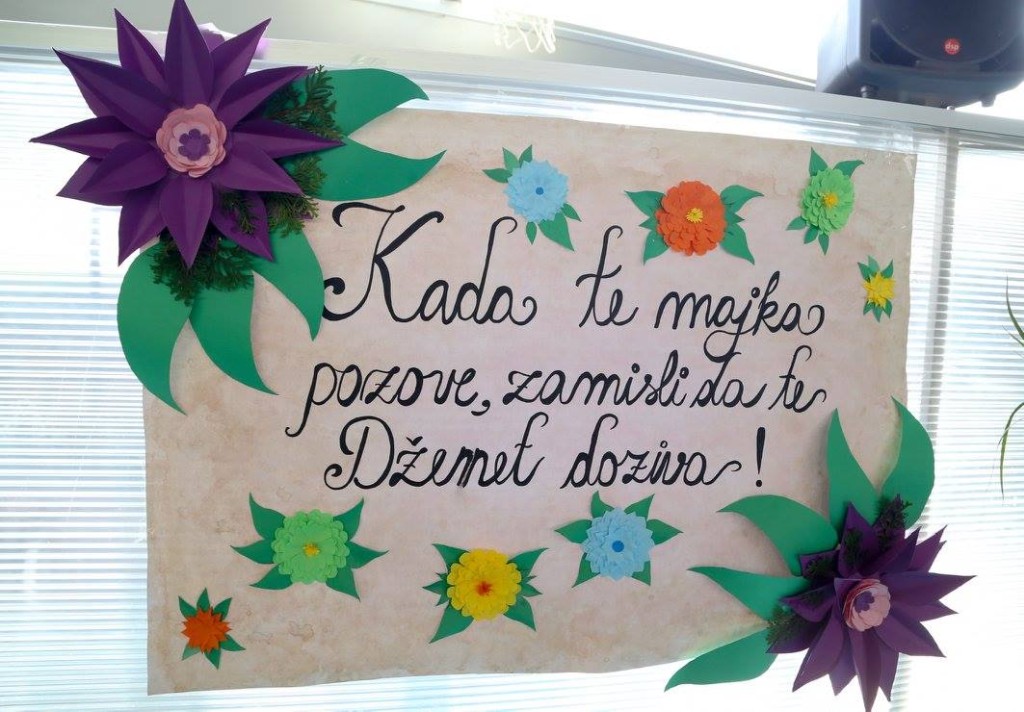 Kada te majka
pozove, zamisli da te
Džemet doziva!